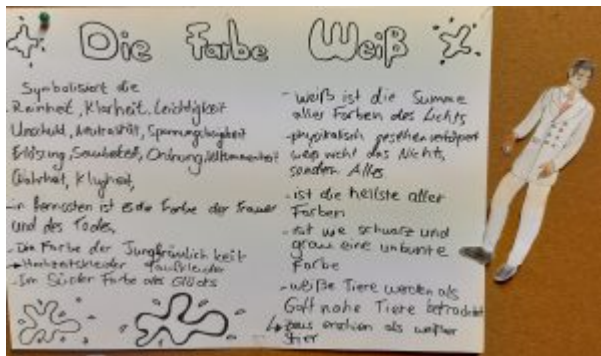 Die Farbe Weiß
Symbolisiert die
Reinheit, Klarheit, Leichtigkeit
Unschuld, Neutralität,
Erlösung, Sauberkeit, Ordnung, Vollkommenheit
Wahrheit, Klugheit,
- in fernosten ist es die Farbe der Trauer
und des Todes,
- Die Farbe der Jungfräulich keit
→ Hochzeitskleider Taufkleider
- Im Farbe des Glücks
- weiß ist die Summe
aller Farben des Lichts
- physikalisch gesehen verkörpert
weiß nicht das Nichts,
sondern Alles
- ist die hellste aller
Farben
- ist wie schwarz und
grau eine unbunte
Farbe
- weiße Tiere werden als
Gott nahe Tiere betrachtet
↳ Zeus erschien als weißer
Stier